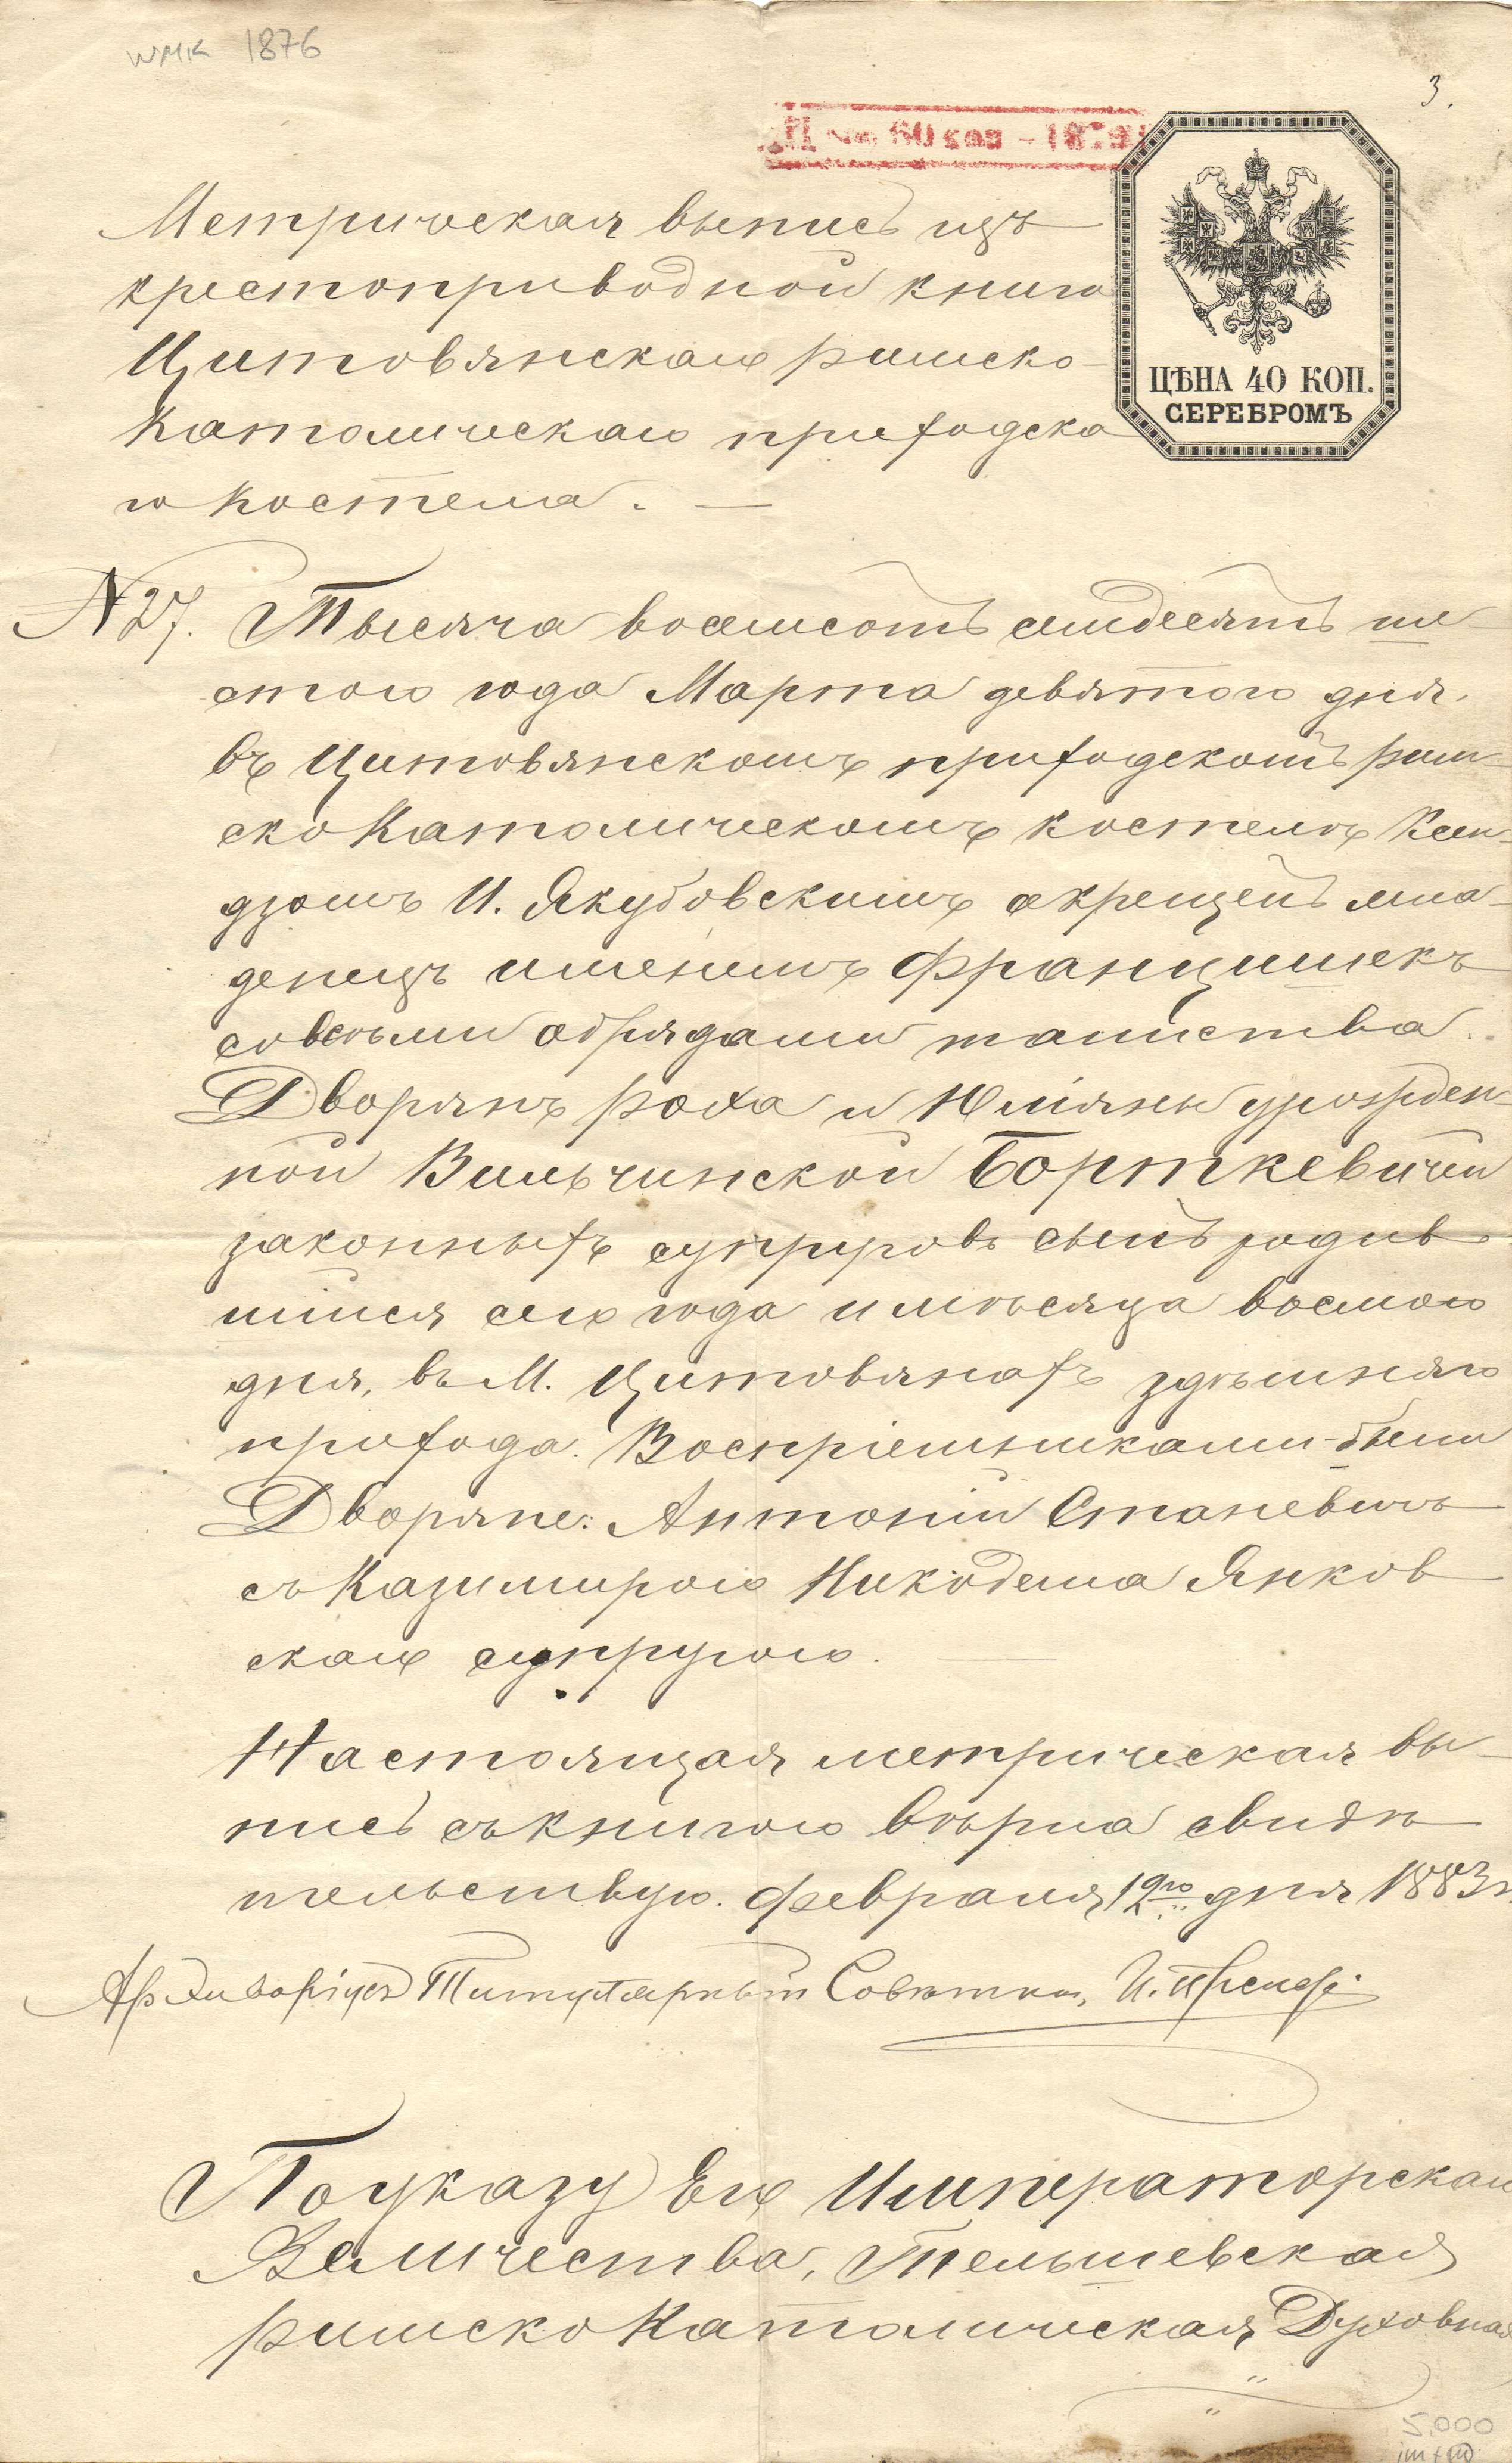 WMK 1876
3.
60 коп - 1879
ЦѢНА 40 КОП.
СЕРЕБРОМЪ
Метрическая выпись изъ
крестоприводной книги
Цитовянскаго римско-
Католическаго приходска
го Костела. —
№ 27. Тысяча восемсотъ семдесятъ ше-
стого года Марта девятого дня,
въ Цитовянскомъ приходскомъ Рим-
ско Католическомъ костелѣ Ксен-
дзомъ И. Якубовскимъ окрещенъ мла-
денецъ именемъ Францишекъ
со всѣми обрядами таинства.
Дворянъ Роха и Юліяны урожден-
ной Вильчинской Борткевичей
законныхъ супруговъ сынъ родив-
шійся сего года и мѣсяца восмого
дня, въ М. Цитовянахъ здѣшняго
прихода. Воспріемниками были
Дворяне: Антоній Станевичъ
съ Казимирою Никодема Янков
скаго супругою.
Настоящая метрическая вы-
пись съ книгою вѣрна свидѣ
тельствую. Февраля 12го дня 1883 г.
Архиваріусъ Титулярный Совѣтникъ, И.
По указу Его Императорскаго
Величества, Тельшевская
Римско Католическая Духовная
5,000